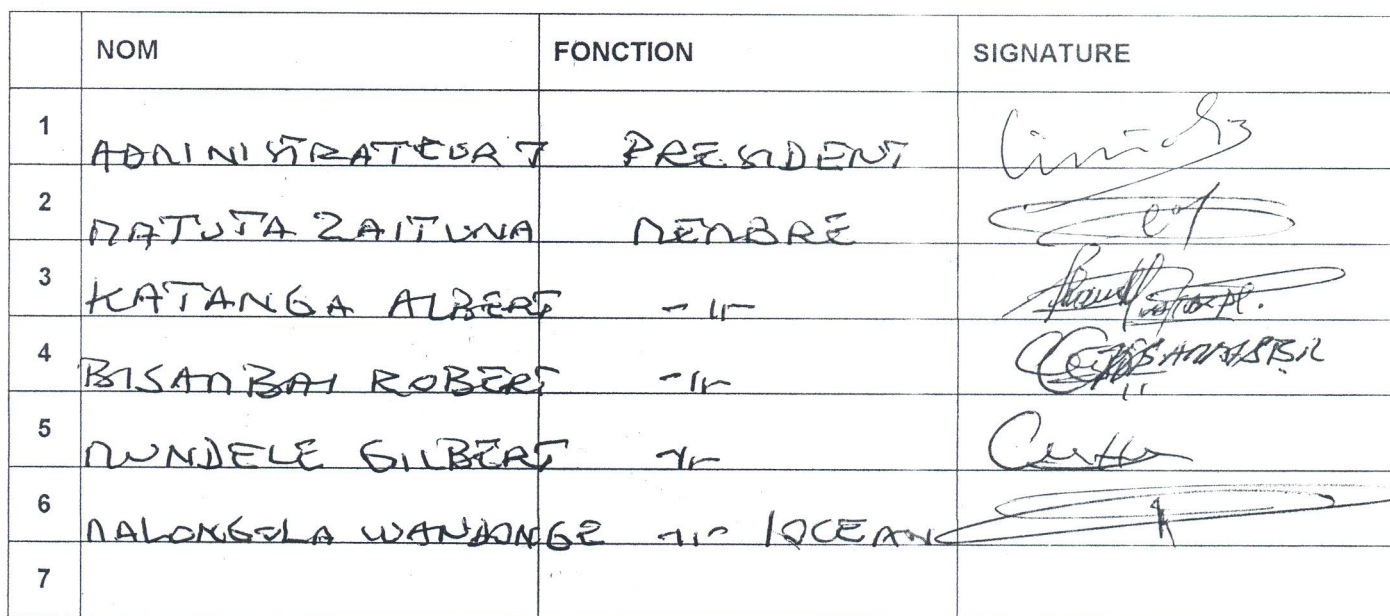 NOM FONCTION SIGNATURE
1 ADMINISTRATEUR T PRESIDENT
2 MATUTA ZAITUNA MEMBRE
3 KATANGA ALBERT -II-
4 BISAMBAI ROBERT -II-
5 MUNDELE GILBERT -II-
6 MALONGOLA WANDONGE -II- /OCEAN
7